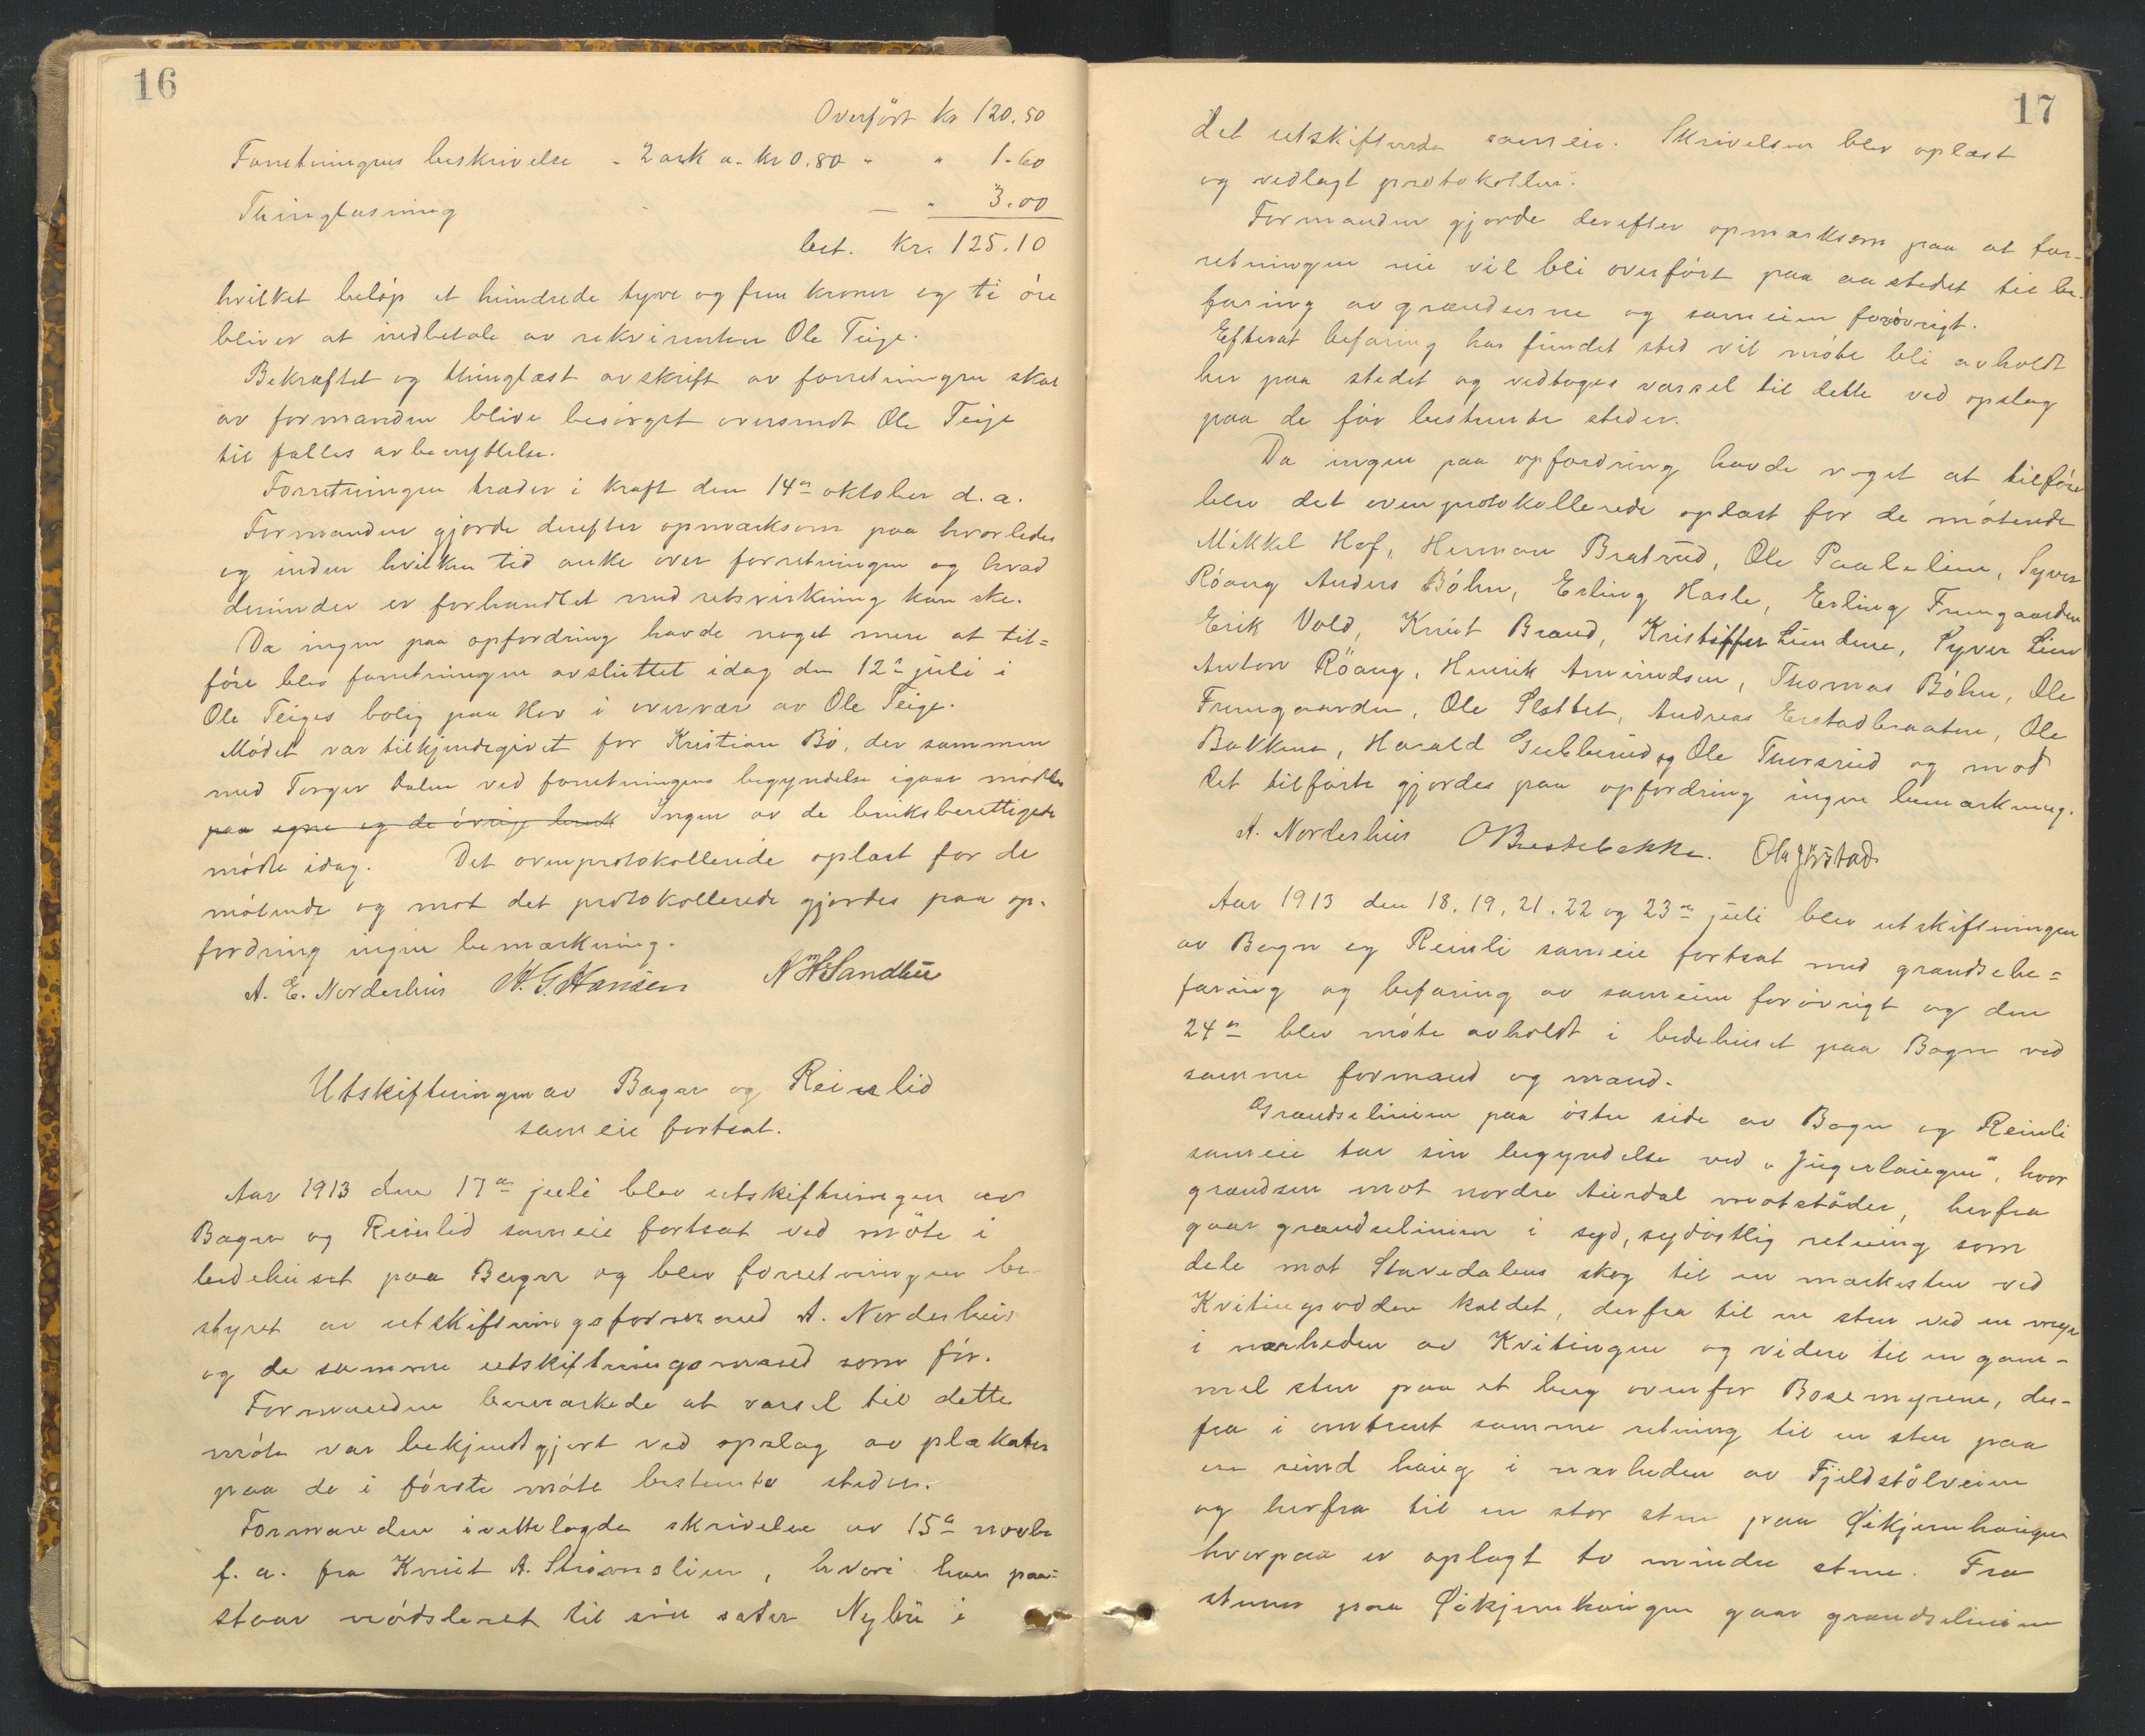 16
Overfört kr 120.50
Forretningens beskrivelse - 2 ark a. kr 0.80 " " 1.60
Thinglæsning — " 3.00
bet. kr. 125.10
hvilket beløp et hundrede tyve og fem kroner og ti öre
bliver at indbetale av rekvirenten Ole Teige.
Bekræftet og thinglæst avskrift av forretningen skal
av formanden blive besörget oversendt Ole Teige
til fælles avbenyttelse.
Forretningen træder i kraft den 14de oktober d. a.
Formanden gjorde derefter opmærksom paa hvorledes
og inden hvilken tid anke over forretningen og hvad
derunder er forhandlet med retsvirkning kan ske.
Da ingen paa opfordring havde noget mere at til=
före blev forretningen avsluttet idag den 12te juli i
Ole Teiges bolig paa Hov i overvær av Ole Teige.
Mödet var tilkjendegivet for Kristian Bö, der sammen
med Torger Dalen ved forretningens begyndelse igaar mödte
paa egne og de övrige bruk Ingen av de bruksberettigede
mödte idag. Det ovenprotokollerede oplæst for de
mötende og mot det protokollerede gjordes paa op-
fordring ingen bemærkning.
A. E. Norderhus H. G. Hansen N H Sandbu
Utskiftningen av Bagn og Reinlid
sameie fortsat.
Aar 1913 den 17de juli blev utskiftningen av
Bagn og Reinlid sameie fortsat ved möte i
bedehuset paa Bagn og blev forretningen be-
styret av utskiftningsformand A. Norderhus
og de samme utskiftningsmænd som för.
Formanden bemærkede at varsel til dette
möte var bekjendtgjort ved opslag av plakater
paa de i förste möte bestemte steder.
Formanden irettelagde skrivelse av 15de novbr
f. a. fra Knut A. Strömslien, hvori han paa=
staar mödsleret til sin sæter Nybu i
17
det utskiftende sameie. Skrivelsen blev oplæst
og vedlagt protokollen.
Formanden gjorde derefter opmærksom paa at for-
retningen nu vil bli overfört paa aastedet til be-
faring av grændserne og sameiet forövrigt.
Efterat befaring har fundet sted vil möte bli avholdt
her paa stedet og vedtages varsel til dette ved opslag
paa de för bestemte steder.
Da ingen paa opfordring havde noget at tilföre
blev det ovenprotokollerede oplæst for de mötende
Mikkel Hof, Herman Bratrud, Ole Paalelien, Syver
Röang Anders Böhn, Erling Hasle, Erling Fremgaarden
Erik Vold, Knut Brand, Kristoffer Lundene, Syver Lien
Anton Röang, Henrik Amundsen, Thomas Böhn, Ole
Fremgaarden, Ole Slettet, Andreas Erstadbraaten, Ole
Bakken, Harald Gubberud og Ole Thorsrud og mod
det tilförte gjordes paa opfordring ingen bemærkning.
A. Norderhus O Brestebakke. Ole Jörstad
Aar 1913 den 18, 19, 21, 22 og 23de juli blev utskiftningen
av Bagn og Reinli sameie fortsat med grændsebe=
faring og befaring av sameiet forövrigt og den
24de blev möte avholdt i bedehuset paa Bagn ved
samme formand og mænd.
Grændselinien paa östre side av Bagn og Reinli
sameie tar sin begyndelse ved „Jugerhaugen", hvor
grændsen mot nordre Aurdal motstöder, herfra
gaar grændselinien i syd, sydöstlig retning som
dele mot Stavedalens skog til en merkesten ved
Kvitingsodden kaldet, derfra til en sten ved en myr
i nærheden av Kvitingen og videre til en gam-
mel sten paa et berg ovenfor Bosemyrene, der-
fra i omtrent samme retning til en sten paa
en rund haug i nærheden av Fjeldstölveien
og herfra til en stor sten paa Öikjernhaugen
hvorpaa er oplagt to mindre stene. Fra
stenen paa Öikjernhaugen gaar grændselinien